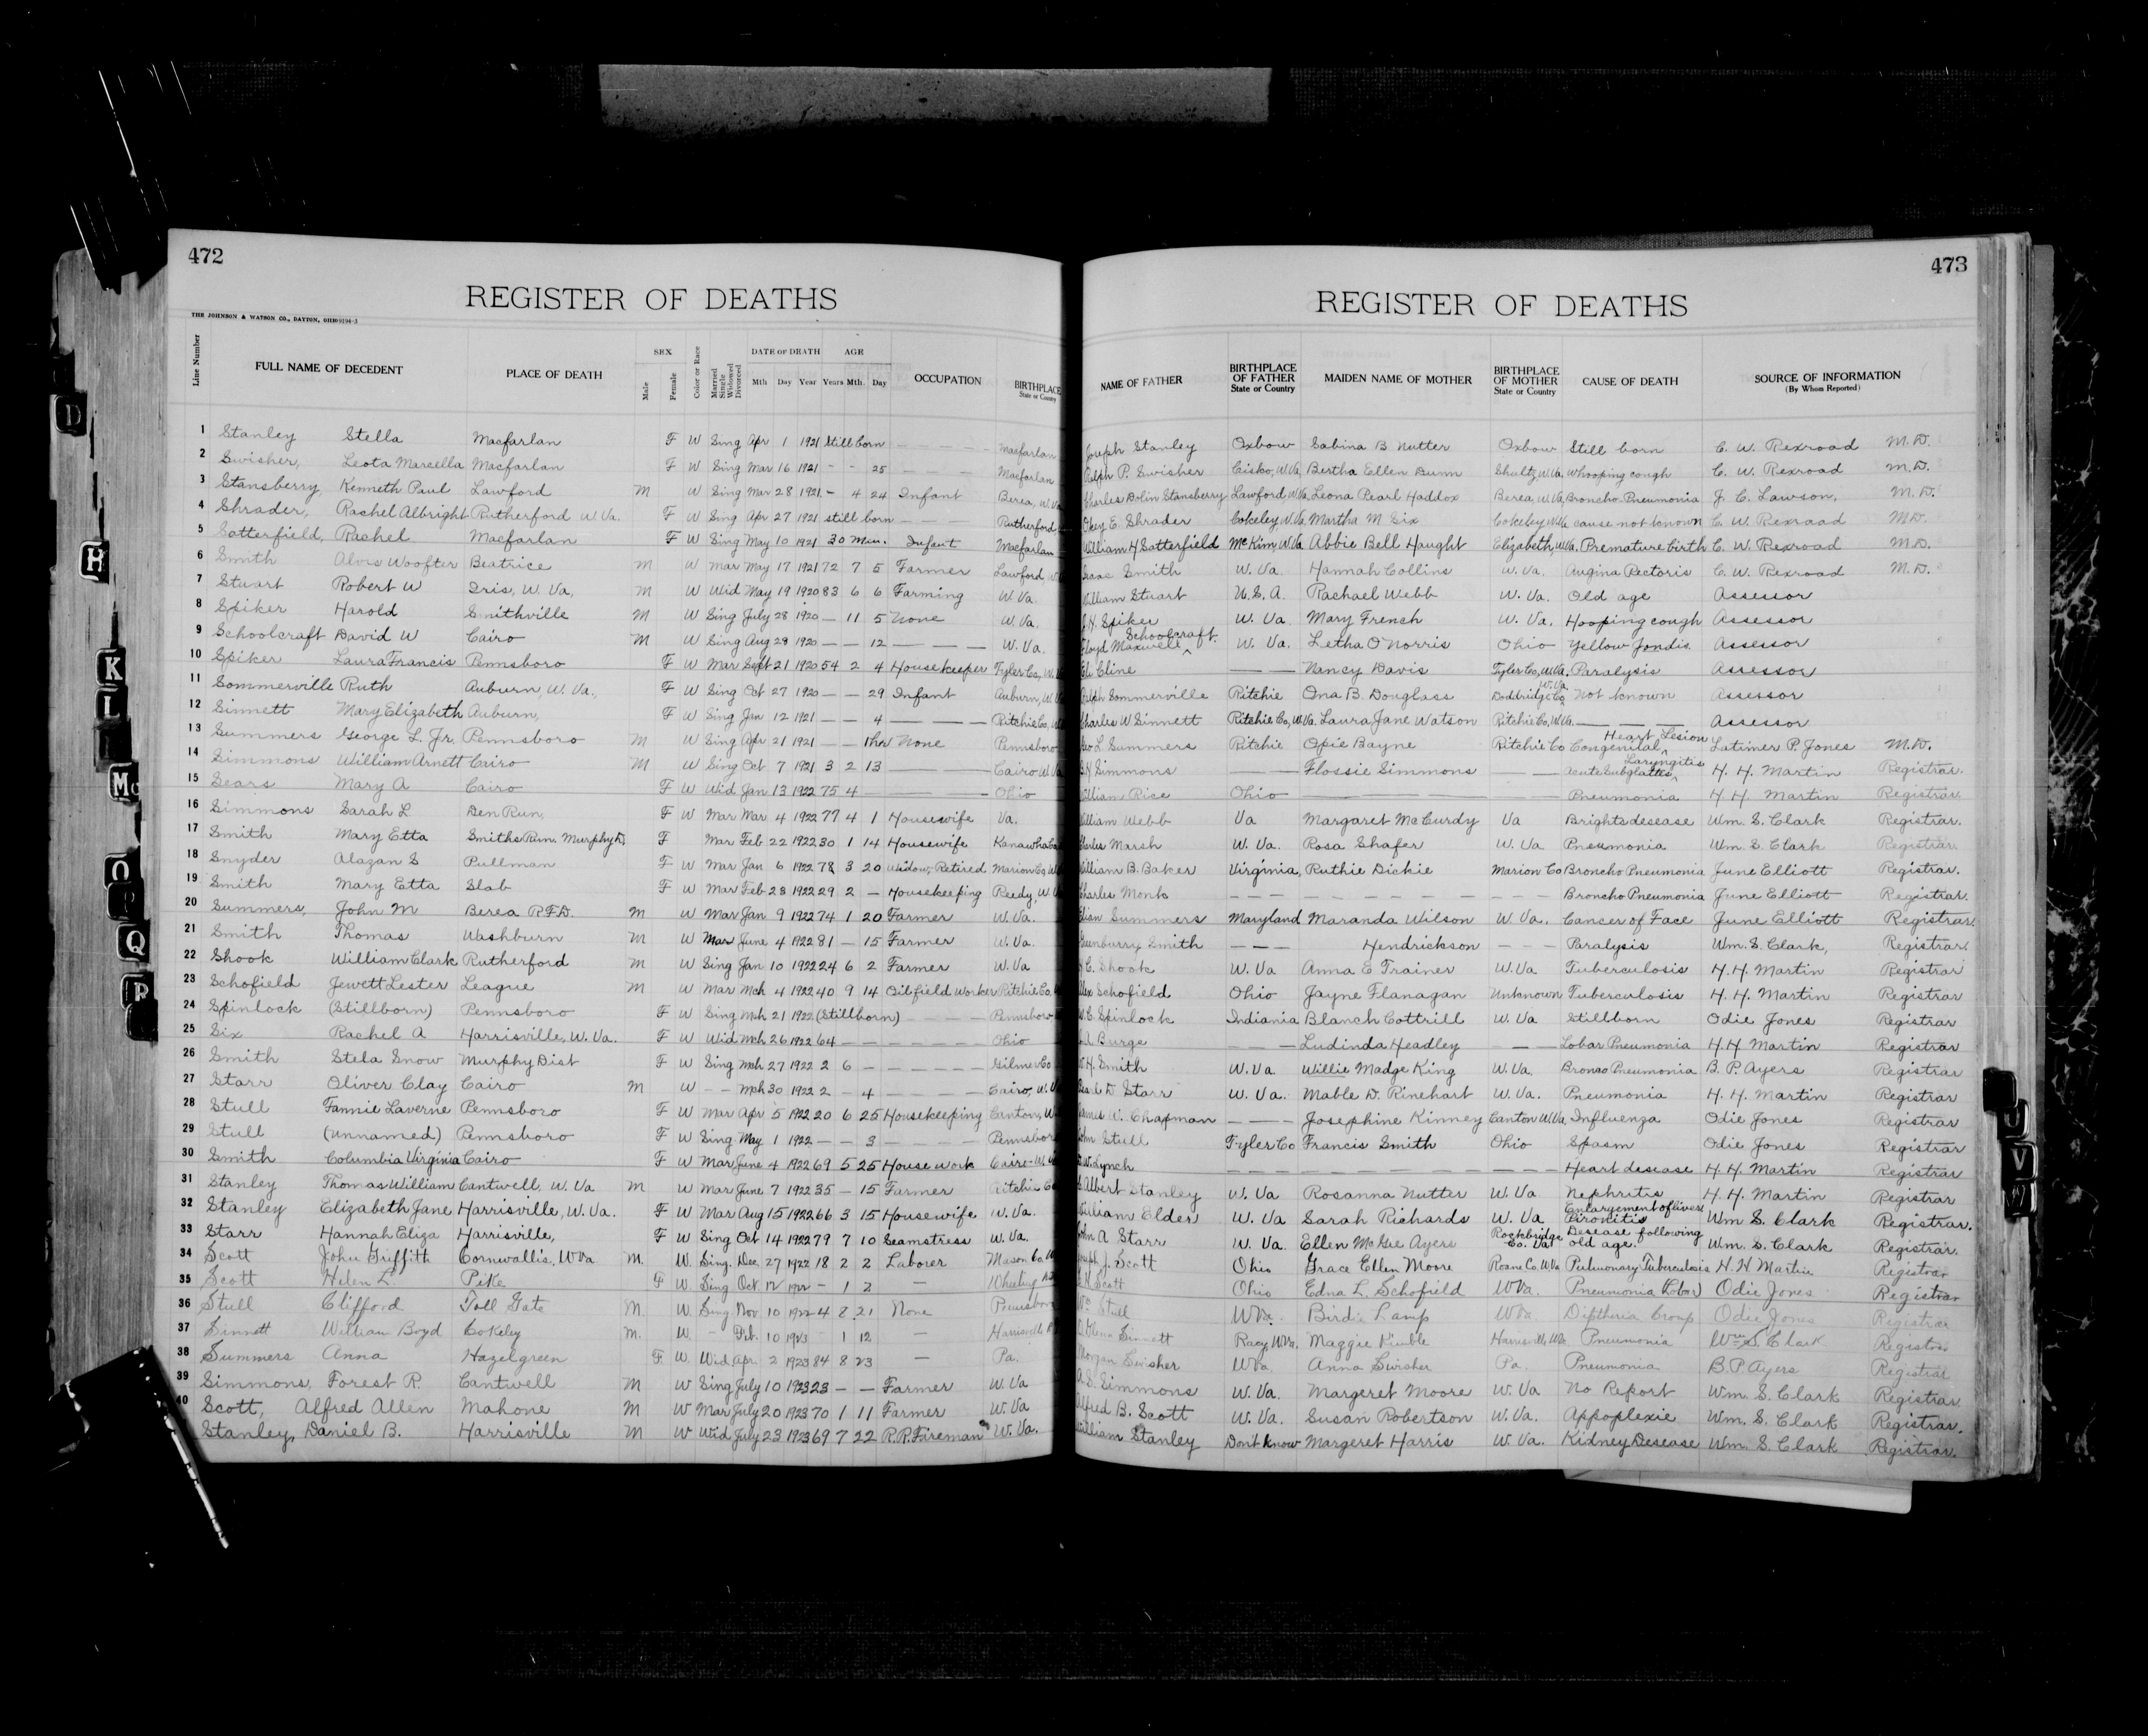 472
REGISTER OF DEATHS
THE JOHNSON & WATSON CO., DAYTON, OHIO
Line Number FULL NAME OF DECEDENT PLACE OF DEATH SEX Male Female Color or Race Married Single Widowed Divorced DATE OF DEATH Mth Day Year AGE Years Mth. Day OCCUPATION BIRTHPLACE State or Country
1 Stanley Stella Macfarlan F W Sing Apr 1 1921 Still born — — — Macfarlan
2 Swisher, Leota Marcella Macfarlan F W Sing Mar 16 1921 - - 25 — — — Macfarlan
3 Stansberry Kenneth Paul Lawford M W Sing Mar 28 1921 - 4 24 Infant Berea, W. Va
4 Shrader, Rachel Albright Rutherford W. Va. F W Sing Apr 27 1921 still born — — — Rutherford
5 Satterfield, Rachel Macfarlan F W Sing May 10 1921 30 Min. Infant Macfarlan
6 Smith Alvis Woofter Beatrice M W Mar May 17 1921 72 7 5 Farmer Lawford
7 Stuart Robert W Iris, W. Va, M W Wid May 19 1920 83 6 6 Farming W. Va.
8 Spiker Harold Smithville M W Sing July 28 1920 — 11 5 None W. Va.
9 Schoolcraft David W Cairo M W Sing Aug 29 1920 — — 12 — — — W. Va.
10 Spiker Laura Francis Pennsboro F W Mar Sept 21 1920 54 2 4 Housekeeper Tyler Co, W.
11 Sommerville Ruth Auburn, W. Va., F W Sing Oct 27 1920 — — 29 Infant Auburn, W. V
12 Sinnett Mary Elizabeth Auburn, F W Sing Jan 12 1921 — — 4 — — — Ritchie Co,
13 Summers George L. Jr. Pennsboro M W Sing Apr 21 1921 — — 1 hr None Pennsboro
14 Simmons William Arnett Cairo M W Sing Oct 7 1921 3 2 13 — — — Cairo W. Va
15 Sears Mary A Cairo F W Wid Jan 13 1922 75 4 — — — Ohio
16 Simmons Sarah L Den Run, F W Mar Mar. 4 1922 77 4 1 Housewife Va.
17 Smith Mary Etta Smiths Run. Murphy D. F Mar Feb 22 1922 30 1 14 Housewife Kanawha Co
18 Snyder Alazan S Pullman F W Mar Jan 6 1922 78 3 20 Widow, Retired Marion Co W
19 Smith Mary Etta Slab F W Mar Feb 28 1922 29 2 — Housekeeping Reedy, W. V
20 Summers, John M Berea R.F.D. M W Mar Jan 9 1922 74 1 20 Farmer W. Va.
21 Smith Thomas Washburn M W Mar June 4 1922 81 — 15 Farmer W. Va.
22 Shook William Clark Rutherford M W Sing Jan 10 1922 24 6 2 Farmer W. Va
23 Schofield Jewett Lester League M W Mar Mch 4 1922 40 9 14 Oilfield Worker Ritchie Co.
24 Spinlock (Stillborn) Pennsboro F W Sing Mch 21 1922 (Stillborn) — — — Pennsboro
25 Six Rachel A Harrisville, W. Va. F W Wid Mch 26 1922 64 — — — — Ohio
26 Smith Stela Snow Murphy Dist F W Sing Mch 27 1922 2 6 — — — Gilmer Co
27 Starr Oliver Clay Cairo M W — — Mch 30 1922 2 — 4 — — — Cairo, W. V
28 Stull Fannie Laverne Pennsboro F W Mar Apr 5 1922 20 6 25 Housekeeping Canton, W
29 Stull (Unnamed) Pennsboro F W Sing May 1 1922 — — 3 — — — Pennsboro
30 Smith Columbia Virginia Cairo F W Mar June 4 1922 69 5 25 House work Cairo-W. Va
31 Stanley Thomas William Cantwell, W. Va M W Mar June 7 1922 35 — 15 Farmer Ritchie Co
32 Stanley Elizabeth Jane Harrisville, W. Va. F W Mar Aug 15 1922 66 3 15 Housewife W. Va.
33 Starr Hannah Eliza Harrisville, F W Sing Oct 14 1922 79 7 10 Seamstress W. Va.
34 Scott John Griffith Cornwallis, W Va M. W. Sing. Dec. 27 1922 18 2 2 Laborer Mason Co. W
35 Scott Helen L. Pike F W. Sing Oct. 12 1922 — 1 2 — Wheeling
36 Stull Clifford Toll Gate M. W. Sing. Nov. 10 1922 4 8 21 None Pennsboro
37 Sinnett William Boyd Cokeley M. W. — Feb. 10 1923 1 12 — Harrisville
38 Summers Anna Hazelgreen F. W. Wid. Apr. 2 1923 84 8 23 — Pa.
39 Simmons, Forest R. Cantwell M W Sing July 10 1923 23 — — Farmer W. Va
40 Scott, Alfred Allen Mahone M W Mar July 20 1923 70 1 11 Farmer W. Va
Stanley, Daniel B. Harrisville M W Wid July 23 1923 69 7 22 R.R. Fireman W. Va.
473
REGISTER OF DEATHS
NAME OF FATHER BIRTHPLACE OF FATHER State or Country MAIDEN NAME OF MOTHER BIRTHPLACE OF MOTHER State or Country CAUSE OF DEATH SOURCE OF INFORMATION (By Whom Reported)
Joseph Stanley Oxbow Sabina B Nutter Oxbow Still born C. W. Rexroad M.D.
Ralph P. Swisher Cisko, W. Va, Bertha Ellen Dunn Shultz W. Va. Whooping cough C. W. Rexroad M.D.
Charles Dolin Stansberry Lawford W. Va. Leona Pearl Haddox Berea, W. Va Broncho Pneumonia J. C. Lawson, M.D.
Okey E. Shrader Cokeley, W. Va. Martha M Six Cokeley W. Va cause not known C. W. Rexroad M.D.
William H Satterfield McKim, W. Va Abbie Bell Haught Elizabeth, W. Va. Premature birth C. W. Rexroad M.D.
Isaac Smith W. Va. Hannah Collins W. Va. Angina Pectoris C. W. Rexroad M.D.
William Stuart U. S. A. Rachael Webb W. Va. Old age Assessor
J. H. Spiker W. Va. Mary French W. Va. Hooping cough Assessor
Floyd Maxwell Schoolcraft. W. Va. Letha O'Norris Ohio Yellow Jondis Assessor
Eli Cline — — Nancy Davis Tyler Co, W. Va. Paralysis Assessor
Ralph Sommerville Ritchie Ona B. Douglass Doddridge Co, W. Va. Not known Assessor
Charles W Sinnett Ritchie Co, W. Va. Laura Jane Watson Ritchie Co, W. Va. — — — Assessor
Geo L. Summers Ritchie Opie Bayne Ritchie Co Congenital Heart Lesion Latimer P. Jones M.D.
Simmons — — Flossie Simmons — — Acute Laryngitis H. H. Martin Registrar.
William Rice Ohio — — — — — Pneumonia H. H. Martin Registrar.
William Webb Va Margaret McCurdy Va Brights desease Wm. S. Clark Registrar.
Charles Marsh W. Va. Rosa Shafer W. Va Pneumonia Wm. S. Clark Registrar
William B. Baker Virginia, Ruthie Dickie Marion Co Broncho Pneumonia June Elliott Registrar.
Charles Monk — — — — — Broncho Pneumonia June Elliott Registrar.
Summers Maryland Maranda Wilson W. Va. Cancer of Face June Elliott Registrar.
Greenburry Smith — — — Hendrickson — — — Paralysis Wm. S. Clark, Registrar.
C. Shook W. Va Anna E Trainer W. Va Tuberculosis H. H. Martin Registrar
Alex Schofield Ohio Jayne Flanagan Unknown Tuberculosis H. H. Martin Registrar
C. Spinlock Indiania Blanch Cottrill W. Va Stillborn Odie Jones Registrar
Burge — — — Ludinda Headley — — Lobar Pneumonia H. H. Martin Registrar
H. Smith W. Va. Willie Madge King W. Va. Bronco Pneumonia B. P. Ayers Registrar
D Starr W. Va. Mable D. Rinehart W. Va. Pneumonia H. H. Martin Registrar
James Chapman — — — Josephine Kinney Canton W. Va, Influenza Odie Jones Registrar
John Stull Tyler Co Francis Smith Ohio Spasm Odie Jones Registrar
Lynch — — — — — — Heart desease H. H. Martin Registrar
Albert Stanley W. Va Rosanna Nutter W. Va. Nephritis H. H. Martin Registrar
William Elder W. Va Sarah Richards W. Va Enlargement of liver Wm S. Clark Registrar.
John A Starr W. Va. Ellen McGre Ayers Rockbridge Co. Va. Desease following old age. Wm. S. Clark Registrar.
Joseph J. Scott Ohio Grace Ellen Moore Roane Co. W Va Pulmonary Tuberculosis H. H Martin Registrar
Scott Ohio Edna L. Schofield W Va. Pneumonia (Lobar) Odie Jones Registrar
Wm Stull W Va. Birdie Lamp W Va Diptheria Croup Odie Jones Registrar
Glenn Sinnett Racy, W Va. Maggie Kimble Harrisville, W Va Pneumonia Wm S. Clark Registrar
Morgan Swisher W Va Anna Swisher Pa. Pneumonia B. P. Ayers Registrar
Simmons W. Va. Margeret Moore W. Va No Report Wm. S. Clark Registrar
Alfred B. Scott W. Va. Susan Robertson W. Va. Appoplexie Wm. S. Clark Registrar.
William Stanley Don't know Margeret Harris W. Va. Kidney Desease Wm. S. Clark Registrar.
D
H
K
L
Q
V